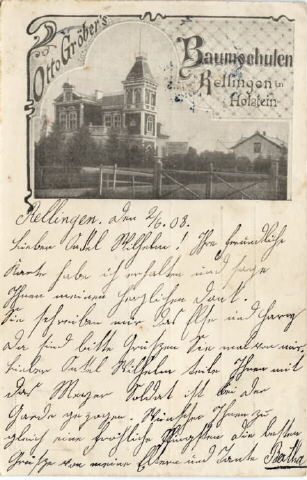 Otto Gröber's
Baumschulen
Rellingen in
Holstein
Rellingen, den 2/6. 03.
Lieben Onkel Wilhelm! Ihre freundliche
Karte habe ich erhalten und sage
Ihnen meinen herzlichen Dank.
Sie schreiben mir das Ehe und Harry
da sind bitte Grüßen Sie mir.
Lieber Onkel Wilhelm teile Ihnen mit
das Meyer Soldat ist bei der
Garde gezogen. Wünsche Ihnen zu
gleich eine fröhliche Pfingsten die besten
Grüße von meine Eltern und Tante Bertha